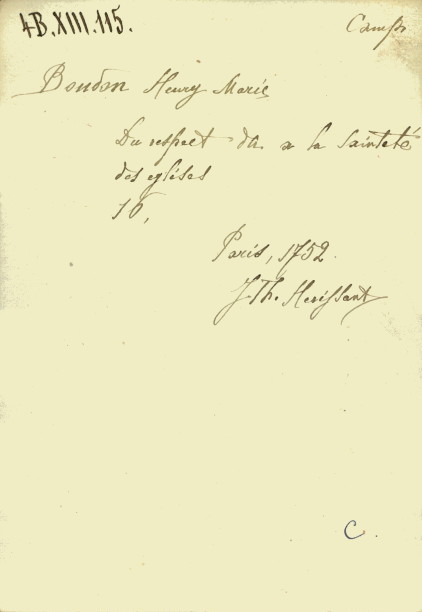 4B.XIII.115.
Camps
Boudon Henry Marie
Du respect dû a la Sainteté
des eglises
16,
Paris, 1752.
J. Th. Herissant
C.